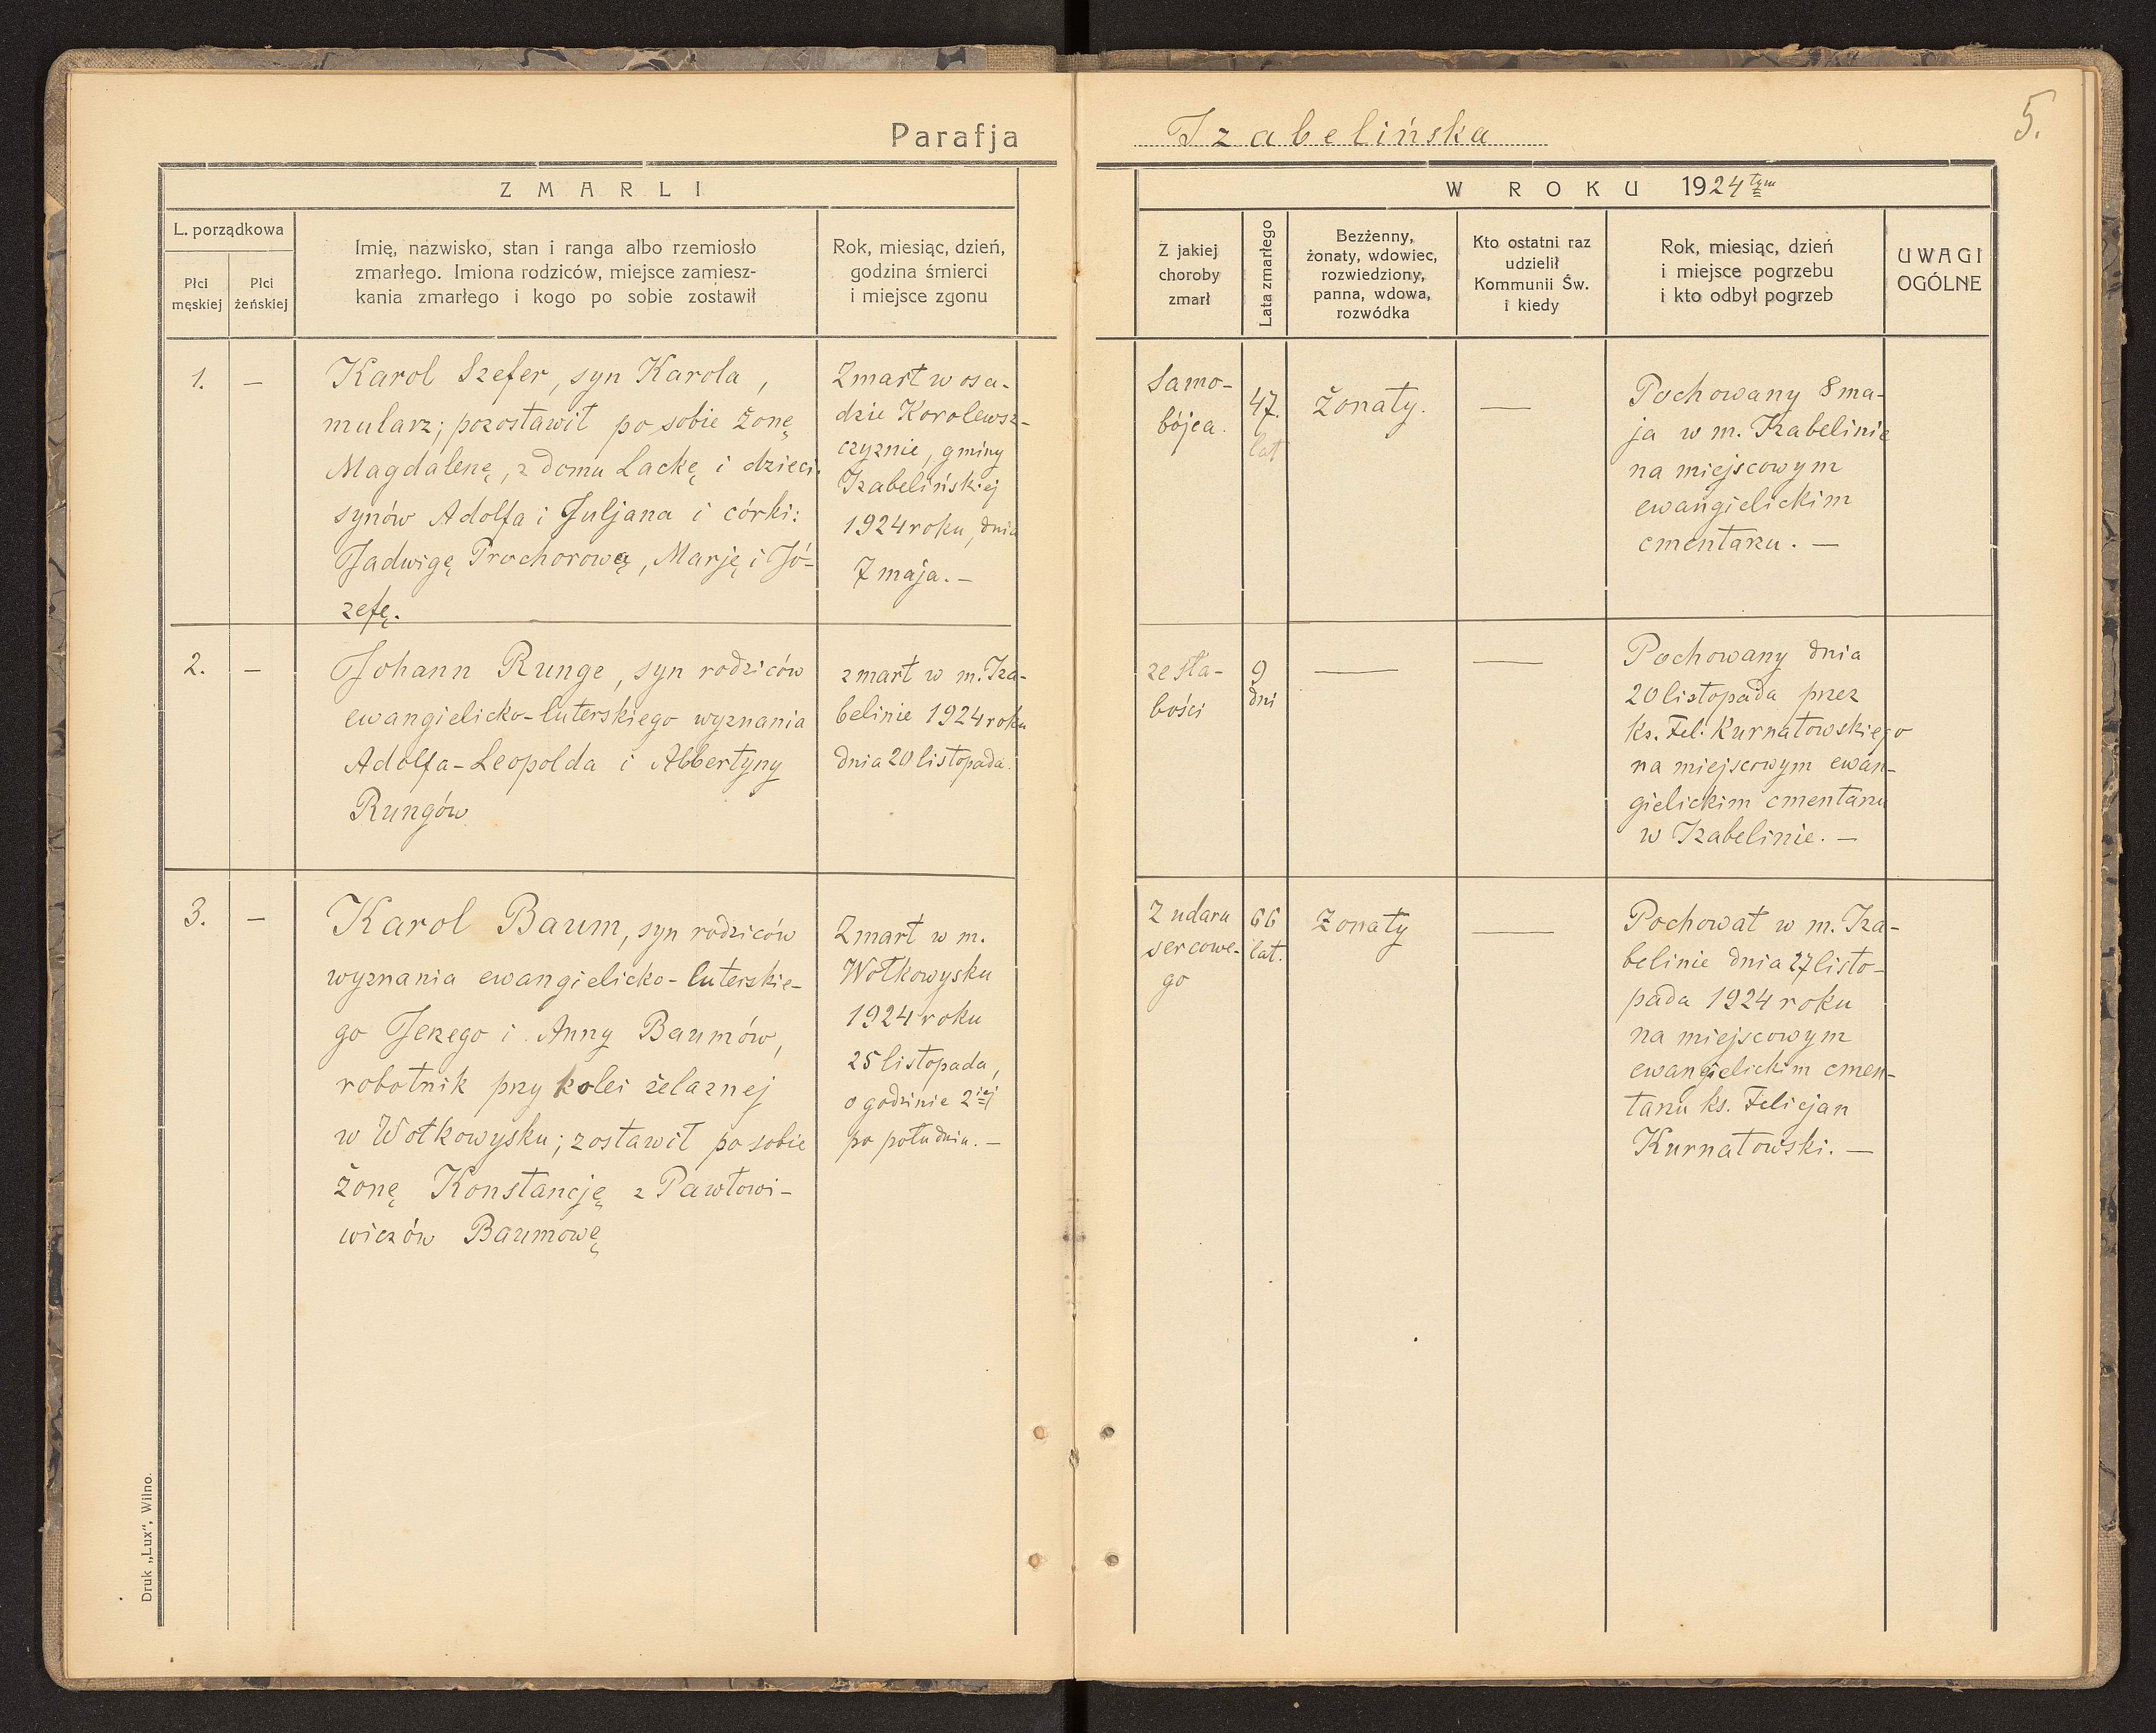 Parafja
Izabelińska
5.
ZMARLI
W ROKU 1924tym
L. porządkowa
Płci męskiej
Płci żeńskiej
Imię, nazwisko, stan i ranga albo rzemiosło
zmarłego. Imiona rodziców, miejsce zamiesz-
kania zmarłego i kogo po sobie zostawił
Rok, miesiąc, dzień,
godzina śmierci
i miejsce zgonu
Z jakiej
choroby
zmarł
Lata zmarłego
Bezżenny,
żonaty, wdowiec,
rozwiedziony,
panna, wdowa,
rozwódka
Kto ostatni raz
udzielił
Kommunii Św.
i kiedy
Rok, miesiąc, dzień
i miejsce pogrzebu
i kto odbył pogrzeb
UWAGI
OGÓLNE
1.
—
Karol Szefer, syn Karola,
mularz; pozostawił po sobie żonę
Magdalenę, z domu Lackę i dzieci:
synów Adolfa i Juljana i córki:
Jadwigę Prochorową, Marję i Jó-
zefę.
Zmarł w osa-
dzie Korolewsz-
czyznie, gminy
Izabelińskiej
1924 roku, dnia
7 maja. —
Samo-
bójca.
47.
lat
Żonaty.
—
Pochowany 8 ma-
ja w m. Izabelinie
na miejscowym
ewangielickim
cmentarzu. —
2.
—
Johann Runge, syn rodziców
ewangielicko-luterskiego wyznania
Adolfa-Leopolda i Albertyny
Rungów
zmarł w m. Iza-
belinie 1924 roku
dnia 20 listopada.
ze sła-
bości
9
dni
—
—
Pochowany dnia
20 listopada przez
ks. Fel. Kurnatowskiego
na miejscowym ewan-
gielickim cmentarzu
w Izabelinie. —
3.
—
Karol Baum, syn rodziców
wyznania ewangielicko-luterskie-
go Jerzego i Anny Baumów,
robotnik przy kolei żelaznej
w Wołkowysku; zostawił po sobie
żonę Konstancję z Pawłowi-
wiczów Baumowę
Zmarł w m.
Wołkowysku
1924 roku
25 listopada,
o godzinie 2iej
po południu. —
Z udaru
sercowe-
go
66
lat.
Żonaty
—
Pochował w m. Iza-
belinie dnia 27 listo-
pada 1924 roku
na miejscowym
ewangielickim cmen-
tarzu ks. Felicjan
Kurnatowski. —
Druk „Lux", Wilno.